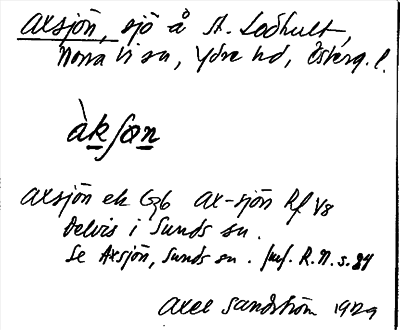 Axsjön, sjö å St. Lodhult,
Norra Vi sn, Ydre hd, Österg. l.
àkʃøn
Axsjön ek Gsb Ax-sjön Rf V8
Delvis i Sunds sn.
Se Axsjön, Sunds sn. Jmf. R.N. s. 84
Axel Sandström 1929